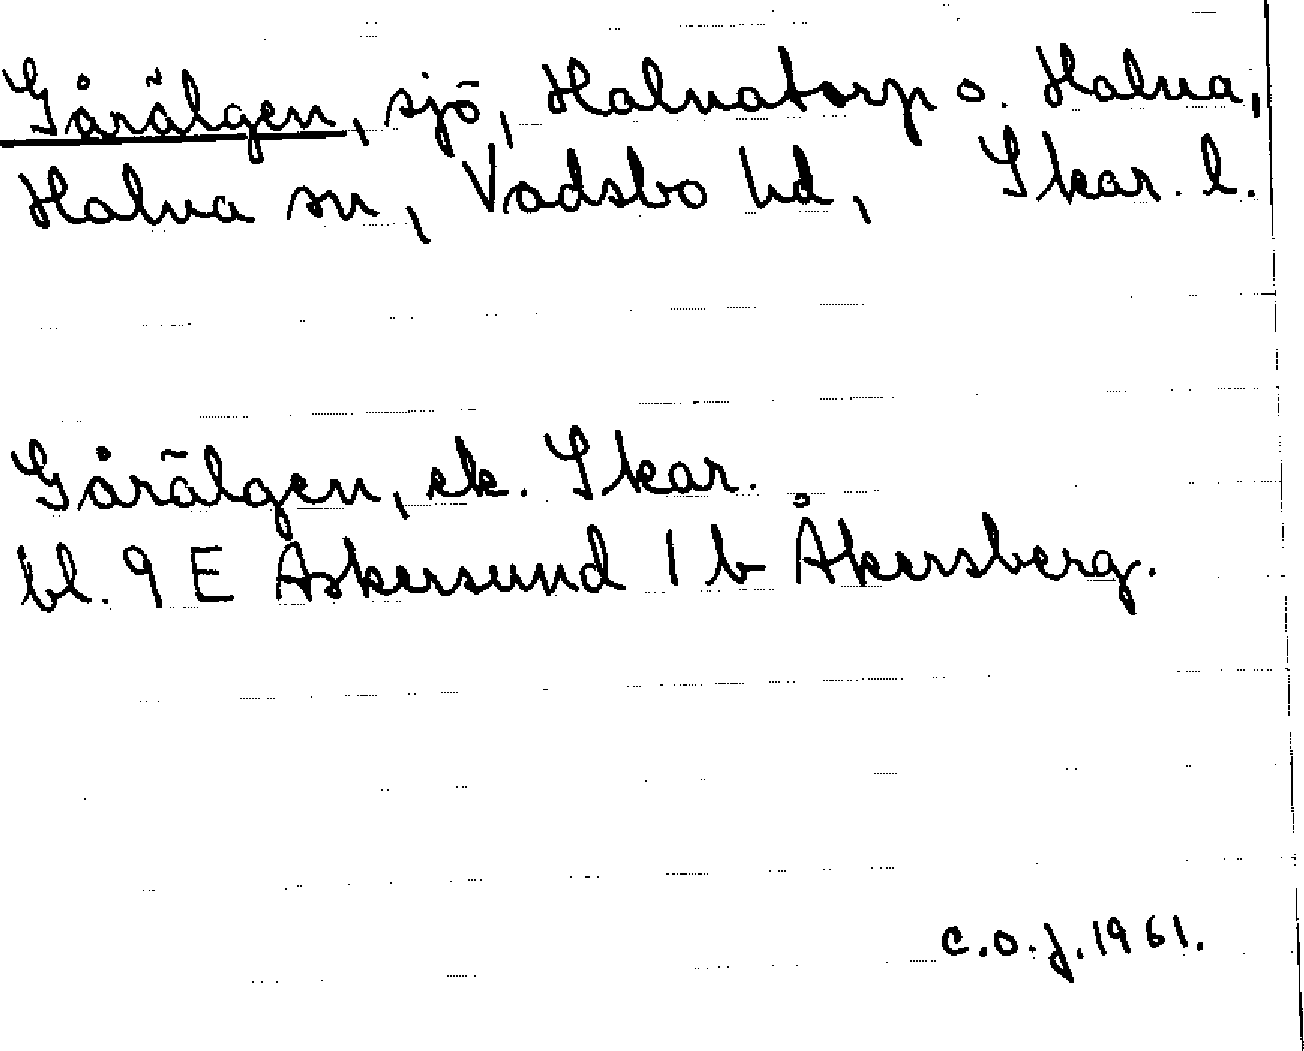 Gårälgen, sjö, Halnatorp o. Halna,
Halna sn, Vadsbo hd, Skar. l.
Gårälgen, ek. Skar.
bl. 9 E Askersund 1 b Åkersberg.
C.O.J. 1961.